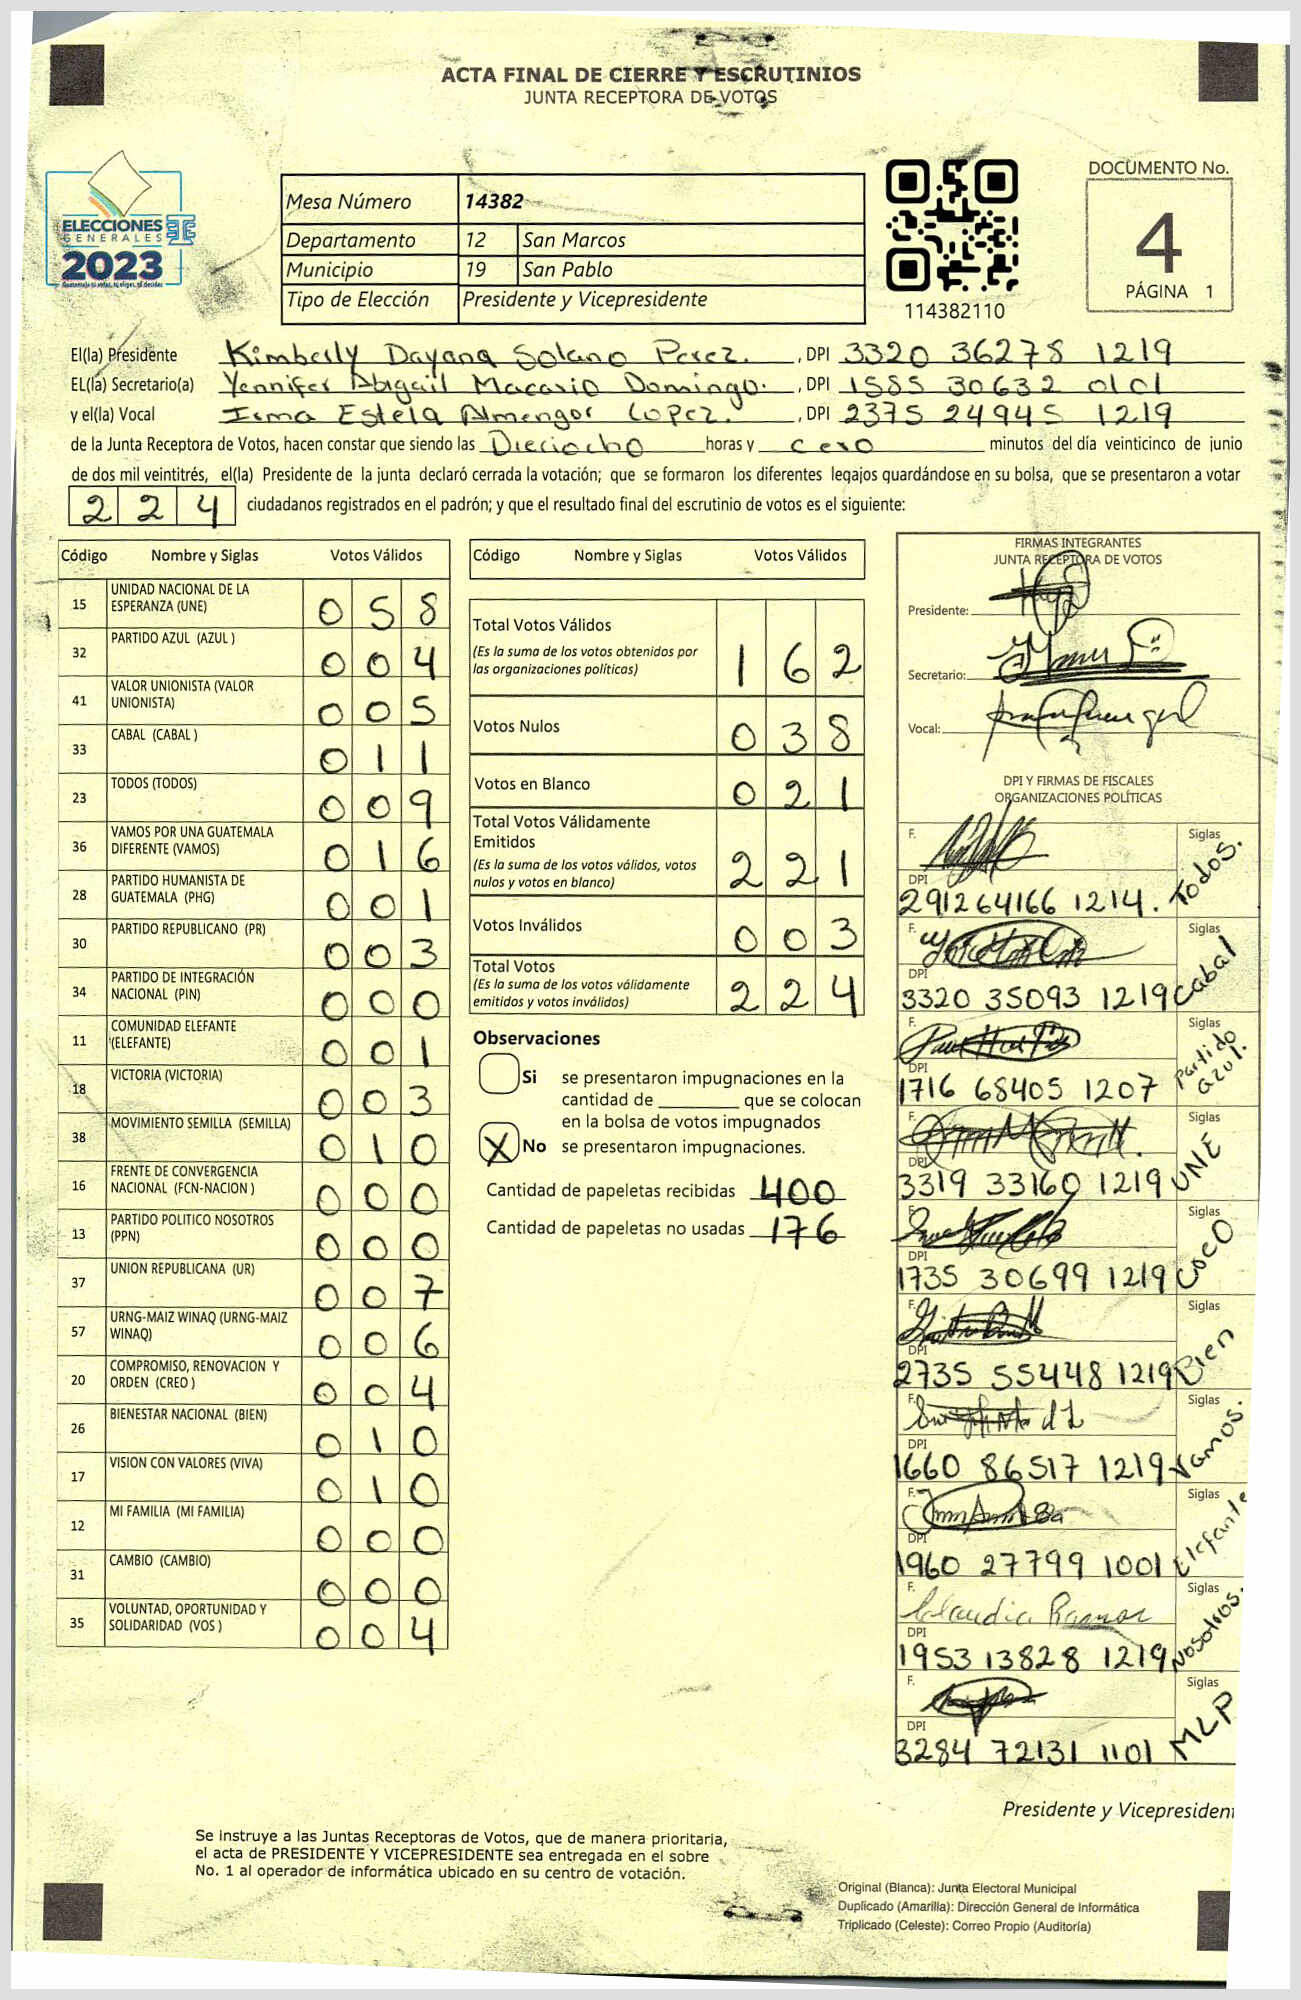 ACTA FINAL DE CIERRE Y ESCRUTINIOS
JUNTA RECEPTORA DE VOTOS
ELECCIONES
GENERALES
2023
Guatemala tú votas, tú eliges, tú decides
Mesa Número 14382
Departamento 12 San Marcos
Municipio 19 San Pablo
Tipo de Elección Presidente y Vicepresidente
114382110
DOCUMENTO No.
4
PÁGINA 1
El(la) Presidente Kimberly Dayana Solano Perez. , DPI 3320 36278 1219
EL(la) Secretario(a) Yennifer Abigail Macario Domingo. , DPI 1585 30632 0101
y el(la) Vocal Irma Estela Almengor Lopez. , DPI 2375 24945 1219
de la Junta Receptora de Votos, hacen constar que siendo las Dieciocho horas y cero minutos del día veinticinco de junio
de dos mil veintitrés, el(la) Presidente de la junta declaró cerrada la votación; que se formaron los diferentes legajos guardándose en su bolsa, que se presentaron a votar
224 ciudadanos registrados en el padrón; y que el resultado final del escrutinio de votos es el siguiente:
Código Nombre y Siglas Votos Válidos
15 UNIDAD NACIONAL DE LA ESPERANZA (UNE) 058
32 PARTIDO AZUL (AZUL ) 004
41 VALOR UNIONISTA (VALOR UNIONISTA) 005
33 CABAL (CABAL ) 011
23 TODOS (TODOS) 009
36 VAMOS POR UNA GUATEMALA DIFERENTE (VAMOS) 016
28 PARTIDO HUMANISTA DE GUATEMALA (PHG) 001
30 PARTIDO REPUBLICANO (PR) 003
34 PARTIDO DE INTEGRACIÓN NACIONAL (PIN) 000
11 COMUNIDAD ELEFANTE (ELEFANTE) 001
18 VICTORIA (VICTORIA) 003
38 MOVIMIENTO SEMILLA (SEMILLA) 010
16 FRENTE DE CONVERGENCIA NACIONAL (FCN-NACION ) 000
13 PARTIDO POLITICO NOSOTROS (PPN) 000
37 UNION REPUBLICANA (UR) 007
57 URNG-MAIZ WINAQ (URNG-MAIZ WINAQ) 006
20 COMPROMISO, RENOVACION Y ORDEN (CREO ) 004
26 BIENESTAR NACIONAL (BIEN) 010
17 VISION CON VALORES (VIVA) 010
12 MI FAMILIA (MI FAMILIA) 000
31 CAMBIO (CAMBIO) 000
35 VOLUNTAD, OPORTUNIDAD Y SOLIDARIDAD (VOS ) 004
Código Nombre y Siglas Votos Válidos
Total Votos Válidos 162
(Es la suma de los votos obtenidos por
las organizaciones políticas)
Votos Nulos 038
Votos en Blanco 021
Total Votos Válidamente
Emitidos 221
(Es la suma de los votos válidos, votos
nulos y votos en blanco)
Votos Inválidos 003
Total Votos 224
(Es la suma de los votos válidamente
emitidos y votos inválidos)
Observaciones
Si se presentaron impugnaciones en la
cantidad de ________ que se colocan
en la bolsa de votos impugnados
X No se presentaron impugnaciones.
Cantidad de papeletas recibidas 400
Cantidad de papeletas no usadas 176
FIRMAS INTEGRANTES
JUNTA RECEPTORA DE VOTOS
Presidente:
Secretario:
Vocal:
DPI Y FIRMAS DE FISCALES
ORGANIZACIONES POLÍTICAS
F. Siglas Todos.
DPI 291264166 1214.
F. Siglas Cabal
DPI 3320 35093 1219
F. Siglas Partido azul.
DPI 1716 68405 1207
F. Siglas UNE
DPI 3319 33160 1219
F. Siglas
DPI 1735 30699 1219
F. Siglas Bien
DPI 2735 55448 1219
F. Siglas Vamos.
DPI 1660 86517 1219
F. Siglas Elefante
DPI 1960 27799 1001
F. Claudia Ramos Siglas Nosotros.
DPI 1953 13828 1219
F. Siglas MLP
DPI 3284 72131 1101
Presidente y Vicepresiden
Se instruye a las Juntas Receptoras de Votos, que de manera prioritaria,
el acta de PRESIDENTE Y VICEPRESIDENTE sea entregada en el sobre
No. 1 al operador de informática ubicado en su centro de votación.
Original (Blanca): Junta Electoral Municipal
Duplicado (Amarilla): Dirección General de Informática
Triplicado (Celeste): Correo Propio (Auditoría)